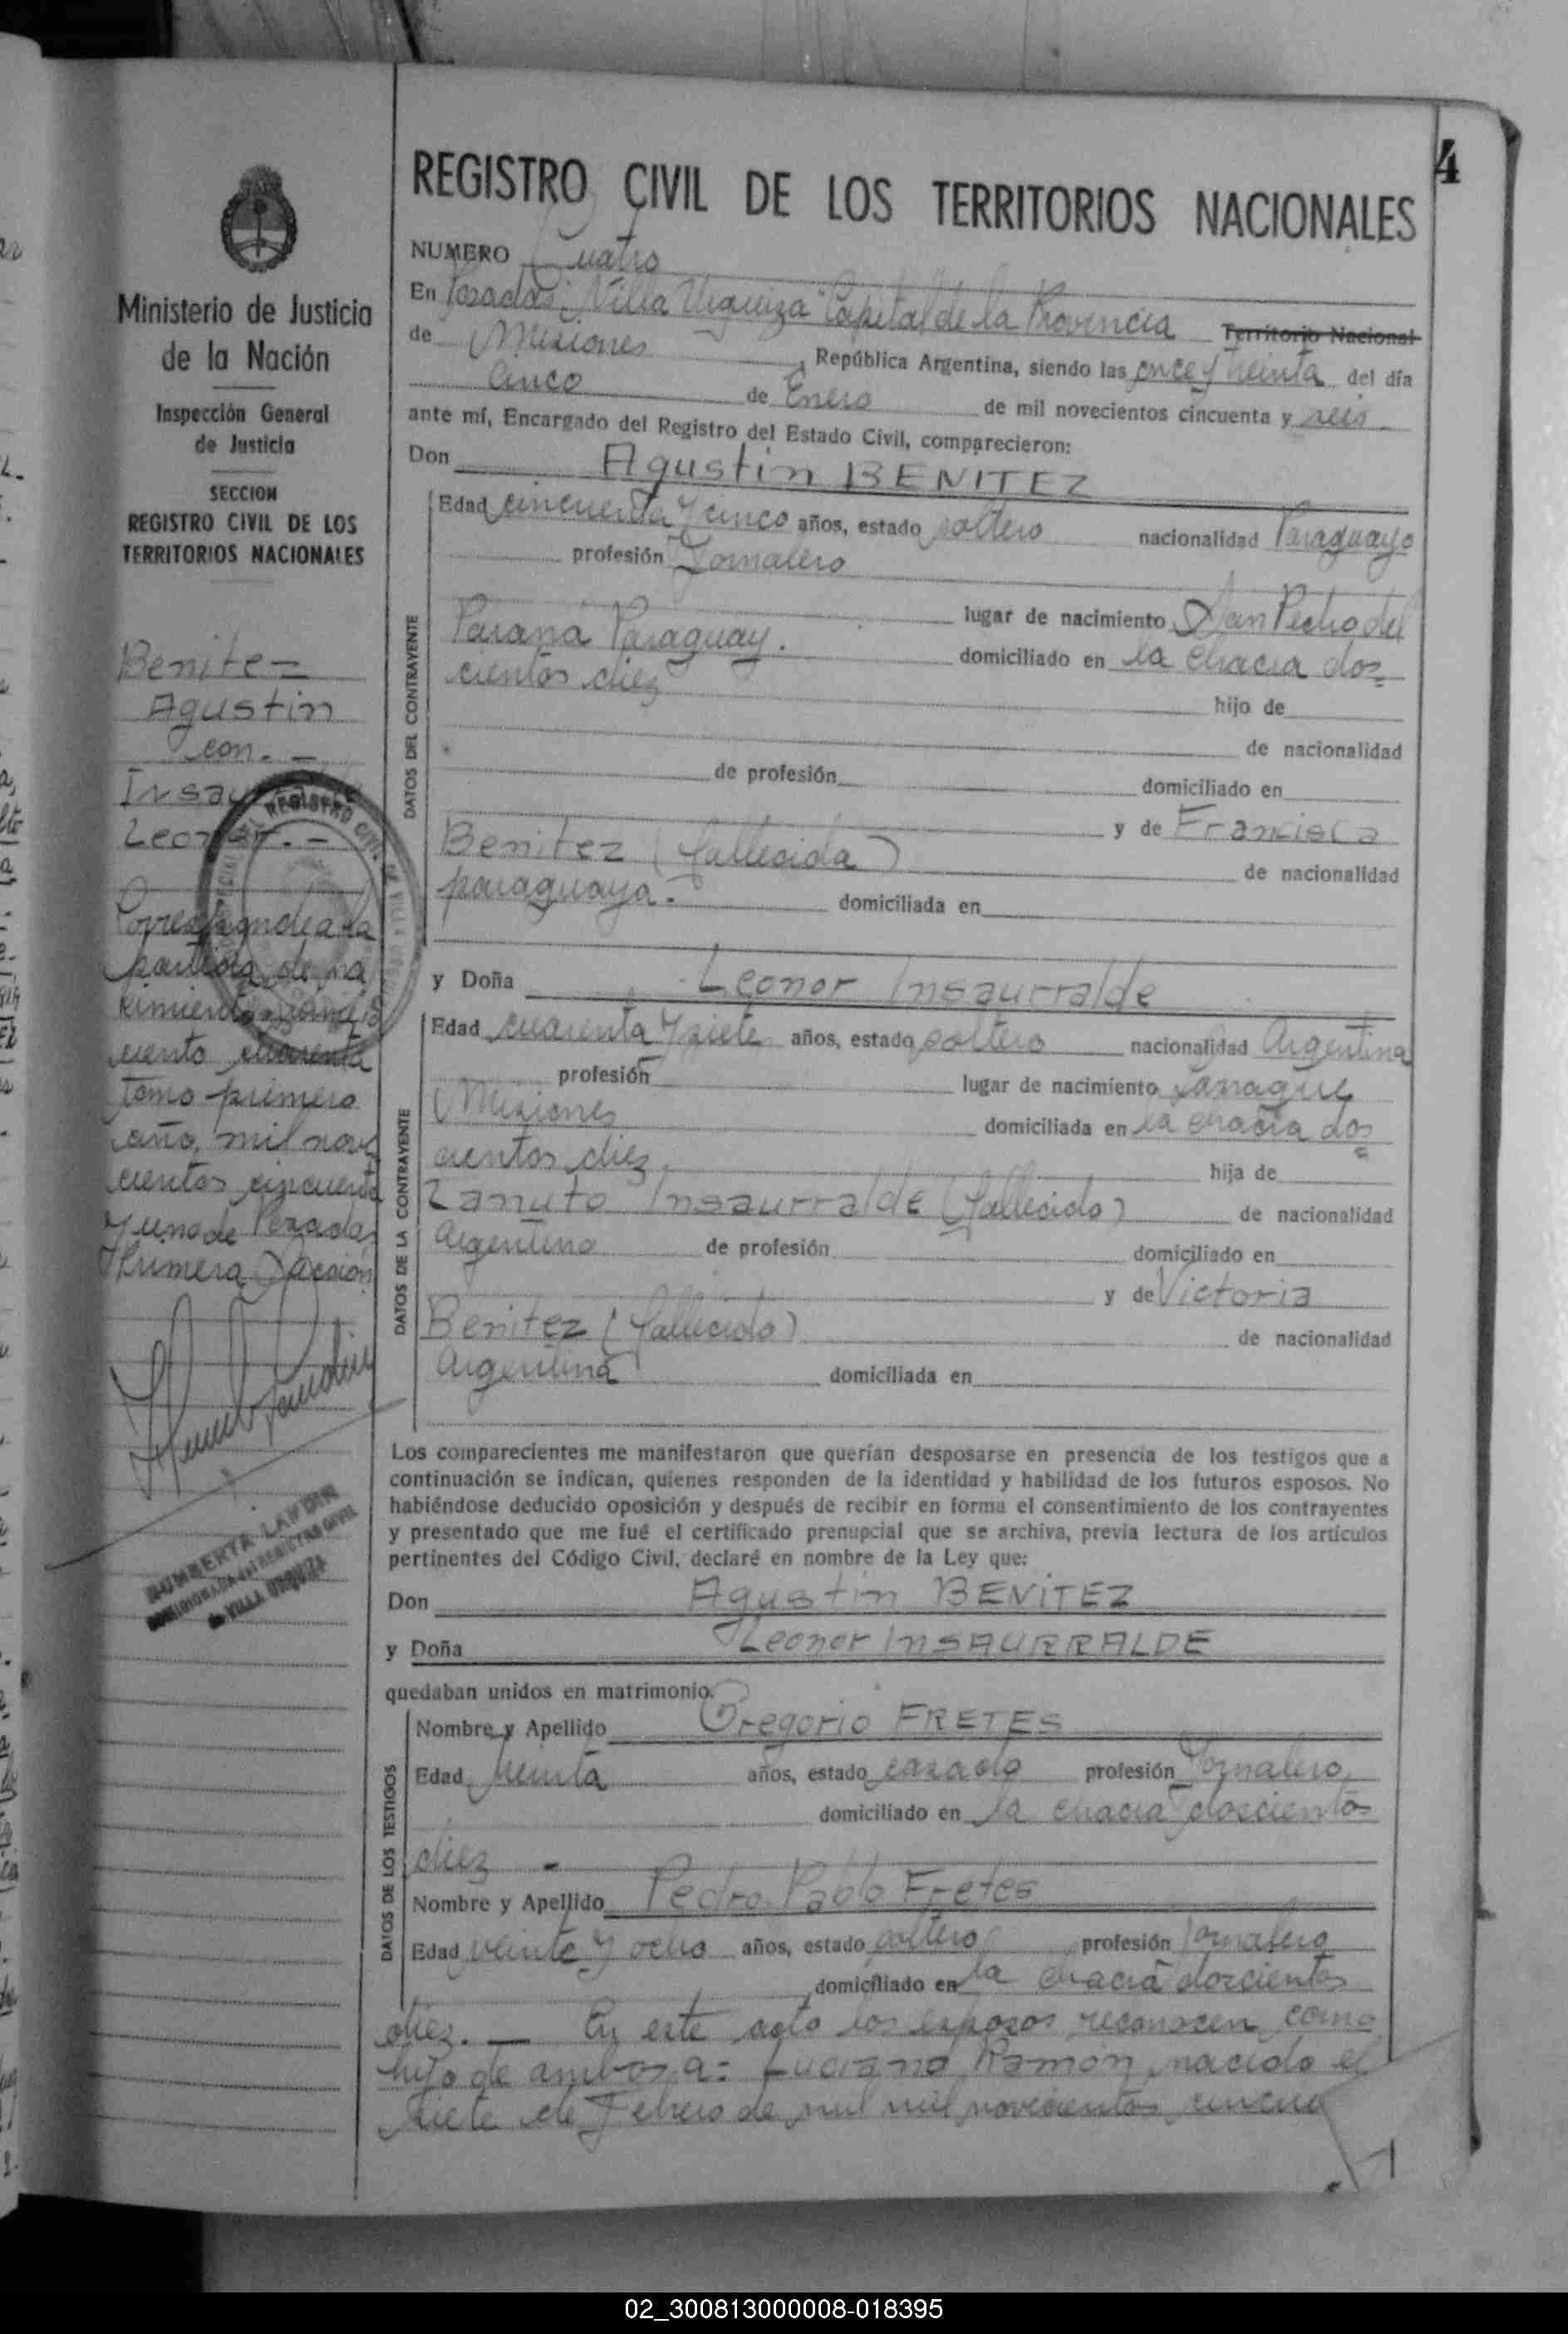 4
REGISTRO CIVIL DE LOS TERRITORIOS NACIONALES
NUMERO Cuatro
En Posadas "Villa Urquiza" Capital de la Provincia Territorio Nacional
de Misiones, República Argentina, siendo las once y treinta del día
cinco de Enero de mil novecientos cincuenta y seis
ante mí, Encargado del Registro del Estado Civil, comparecieron:
Don Agustin BENITEZ
DATOS DEL CONTRAYENTE
Edad cincuenta y cinco años, estado soltero nacionalidad Paraguayo
profesión Jornalero
lugar de nacimiento San Pedro del
Paraná Paraguay. domiciliado en la chacra dos=
cientos diez
hijo de
de nacionalidad
de profesión domiciliado en
y de Francisca
Benitez (fallecida) de nacionalidad
paraguaya.- domiciliada en
y Doña Leonor Insaurralde
DATOS DE LA CONTRAYENTE
Edad cuarenta y siete años, estado soltero nacionalidad Argentina
profesión lugar de nacimiento
Misiones domiciliada en la chacra dos=
cientos diez. hija de
Insaurralde (fallecido) de nacionalidad
argentino de profesión domiciliado en
y de Victoria
Benitez (fallecido) de nacionalidad
argentina domiciliada en
Los comparecientes me manifestaron que querían desposarse en presencia de los testigos que a
continuación se indican, quienes responden de la identidad y habilidad de los futuros esposos. No
habiéndose deducido oposición y después de recibir en forma el consentimiento de los contrayentes
y presentado que me fué el certificado prenupcial que se archiva, previa lectura de los artículos
pertinentes del Código Civil, declaré en nombre de la Ley que:
Don Agustin BENITEZ
y Doña Leonor INSAURRALDE
quedaban unidos en matrimonio.
DATOS DE LOS TESTIGOS
Nombre y Apellido Gregorio FRETES
Edad treinta años, estado casado profesión Jornalero
domiciliado en la chacra doscientos
diez -
Nombre y Apellido Pedro Pablo Fretes
Edad veinte y ocho años, estado soltero profesión Jornalero
domiciliado en la chacra doscientos
diez. — En este acto los esposos reconocen como
hijo de ambos a: Luciano Ramón, nacido el
siete de Febrero de mil mil novecientos cincue
Ministerio de Justicia
de la Nación
Inspección General
de Justicia
SECCION
REGISTRO CIVIL DE LOS
TERRITORIOS NACIONALES
Benitez
Agustin
con. -
Leonor. -
Corresponde a la
partida de na
cimiento
ciento cuarenta
tomo primero
año, mil nove
cientos cincuenta
y uno de Posadas
Primera Sección
REGISTRO CIVIL
LANDIN
DEL REGISTRO CIVIL
de VILLA URQUIZA
02_300813000008-018395